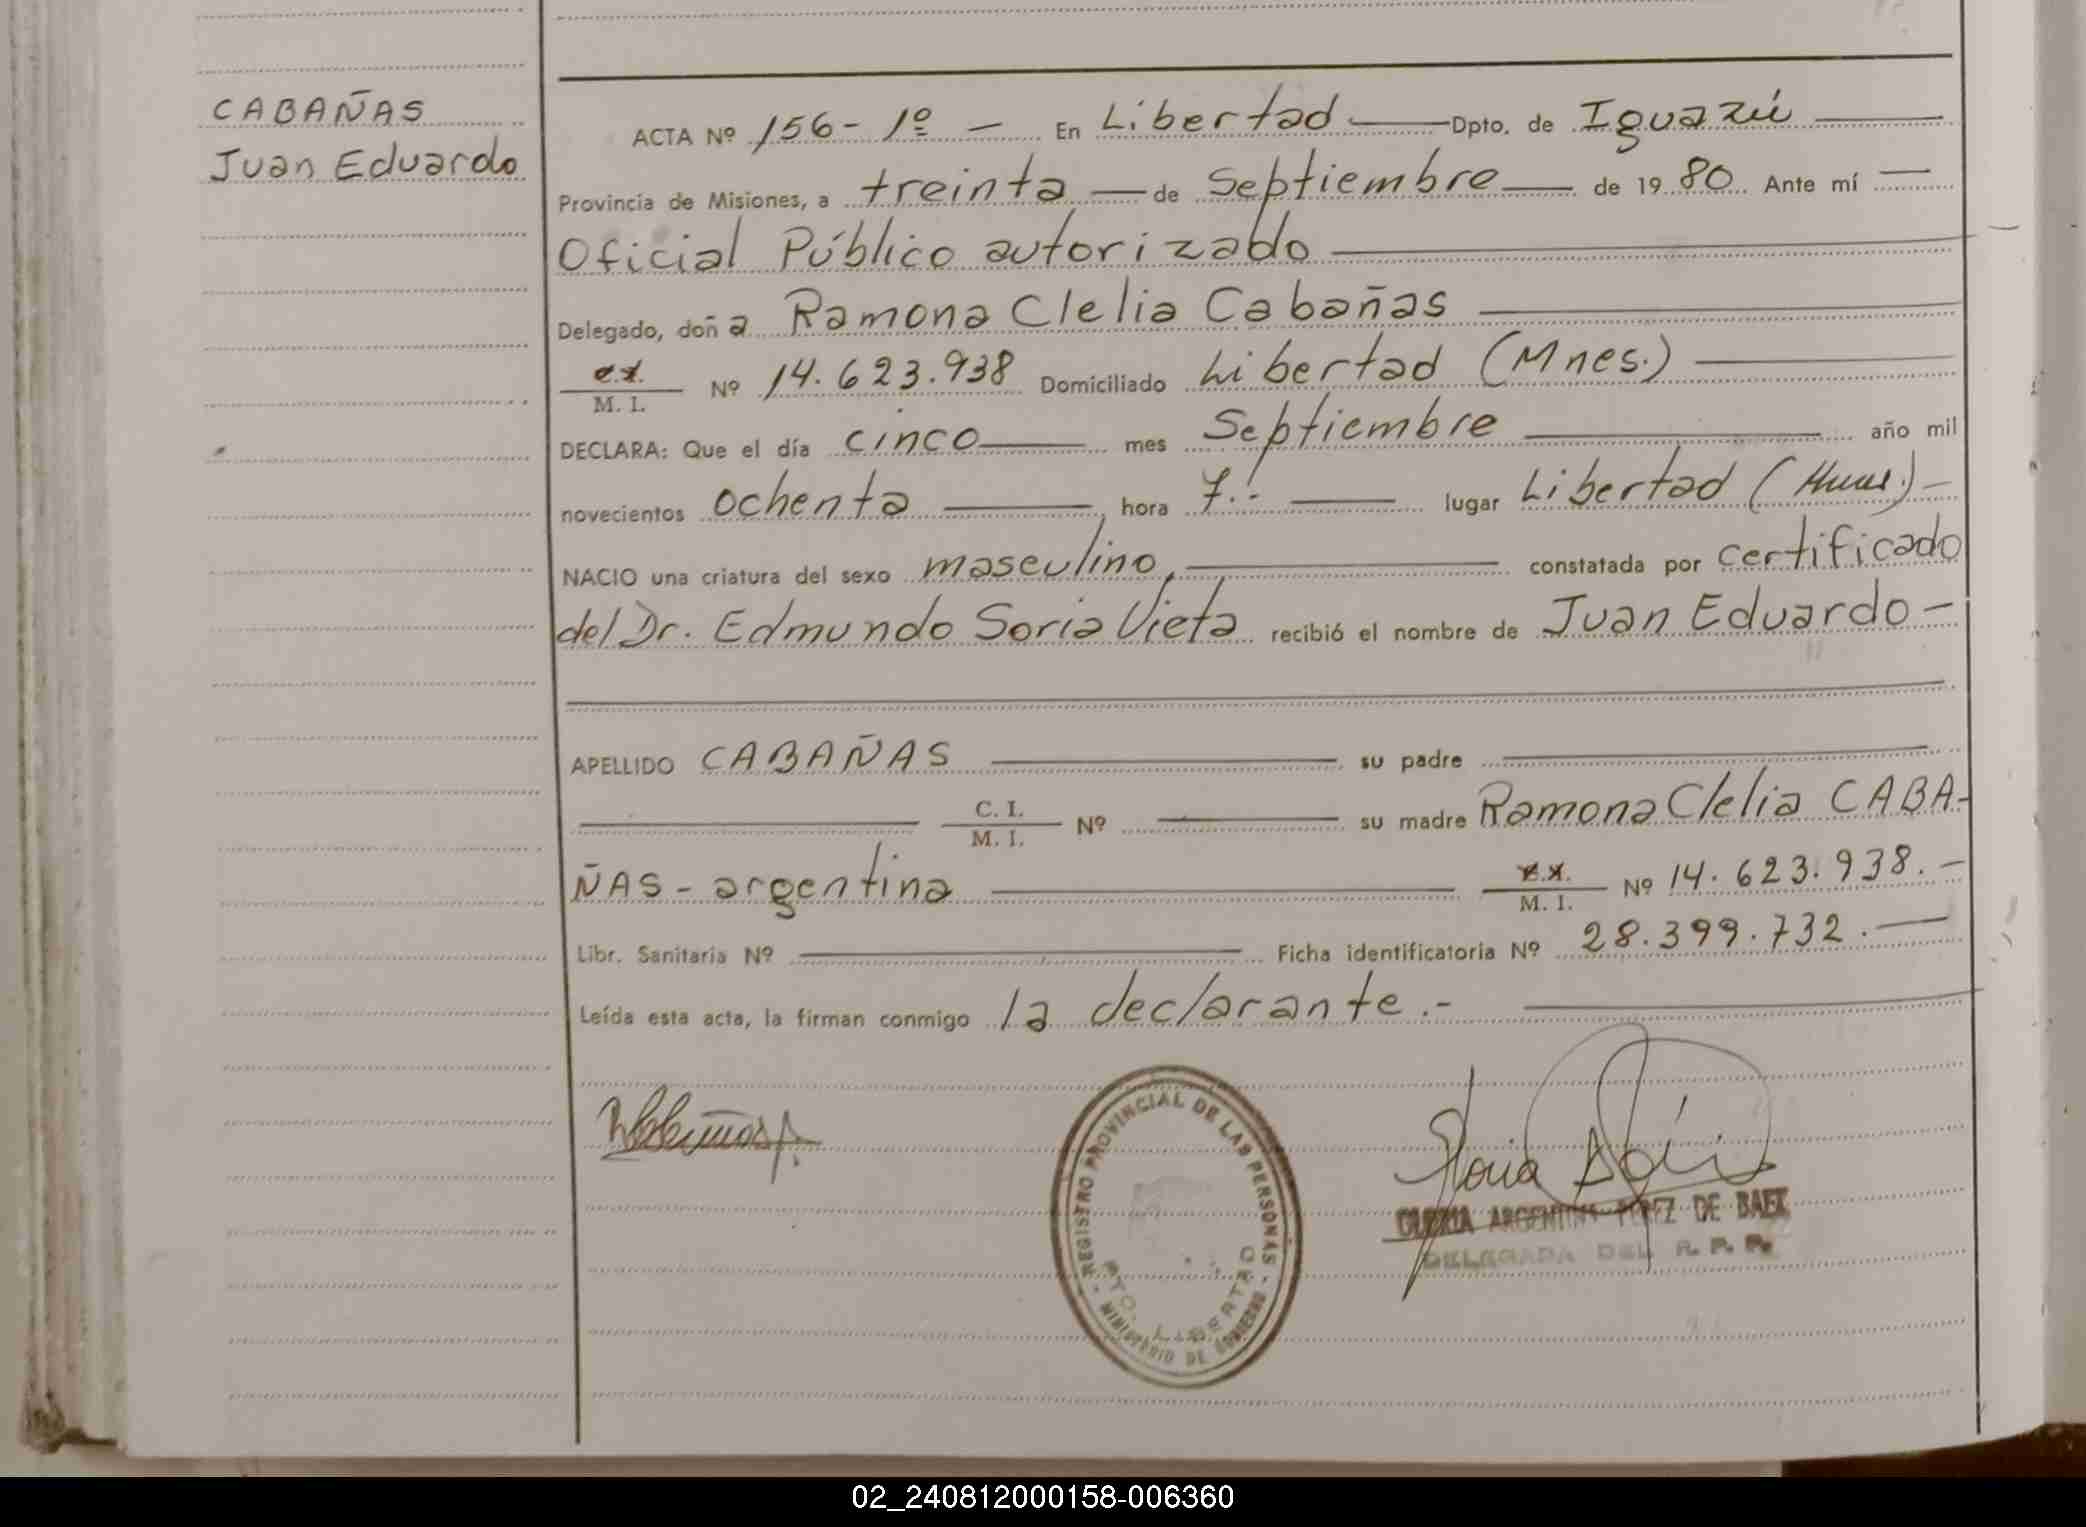 CABAÑAS
Juan Eduardo
ACTA Nº 156- 1º — En Libertad — Dpto. de Iguazú —
Provincia de Misiones, a treinta — de Septiembre — de 1980 Ante mí —
Oficial Público autorizado —
Delegado, doña Ramona Clelia Cabañas —
M. I. Nº 14.623.938 Domiciliado Libertad (Mnes.) —
DECLARA: Que el día cinco — mes Septiembre — año mil
novecientos ochenta — hora 7.- — lugar Libertad (Mnes.) —
NACIO una criatura del sexo masculino, — constatada por certificado
del Dr. Edmundo Soria Vieta recibió el nombre de Juan Eduardo —
APELLIDO CABAÑAS — su padre —
— C. I. M. I. Nº — su madre Ramona Clelia CABA-
ÑAS - argentina — M. I. Nº 14.623.938. —
Libr. Sanitaria Nº — Ficha identificatoria Nº 28.399.732. —
Leída esta acta, la firman conmigo la declarante.- —
REGISTRO PROVINCIAL DE LAS PERSONAS
- MINISTERIO DE GOBIERNO -
LIBERTAD
GLORIA ARGENTINA PEREZ DE BAEZ
DELEGADA DEL R. P. P.
02_240812000158-006360